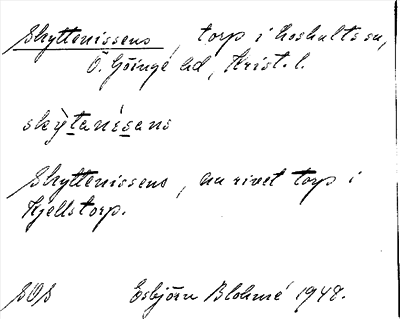 Skyttenissens, torp i Loshults sn,
Ö. Göinge hd, Krist. l.
skỳtanísans
Skyttenissens, nu rivet torp i
Kjellstorp.
SOS Esbjörn Blohmé 1948.